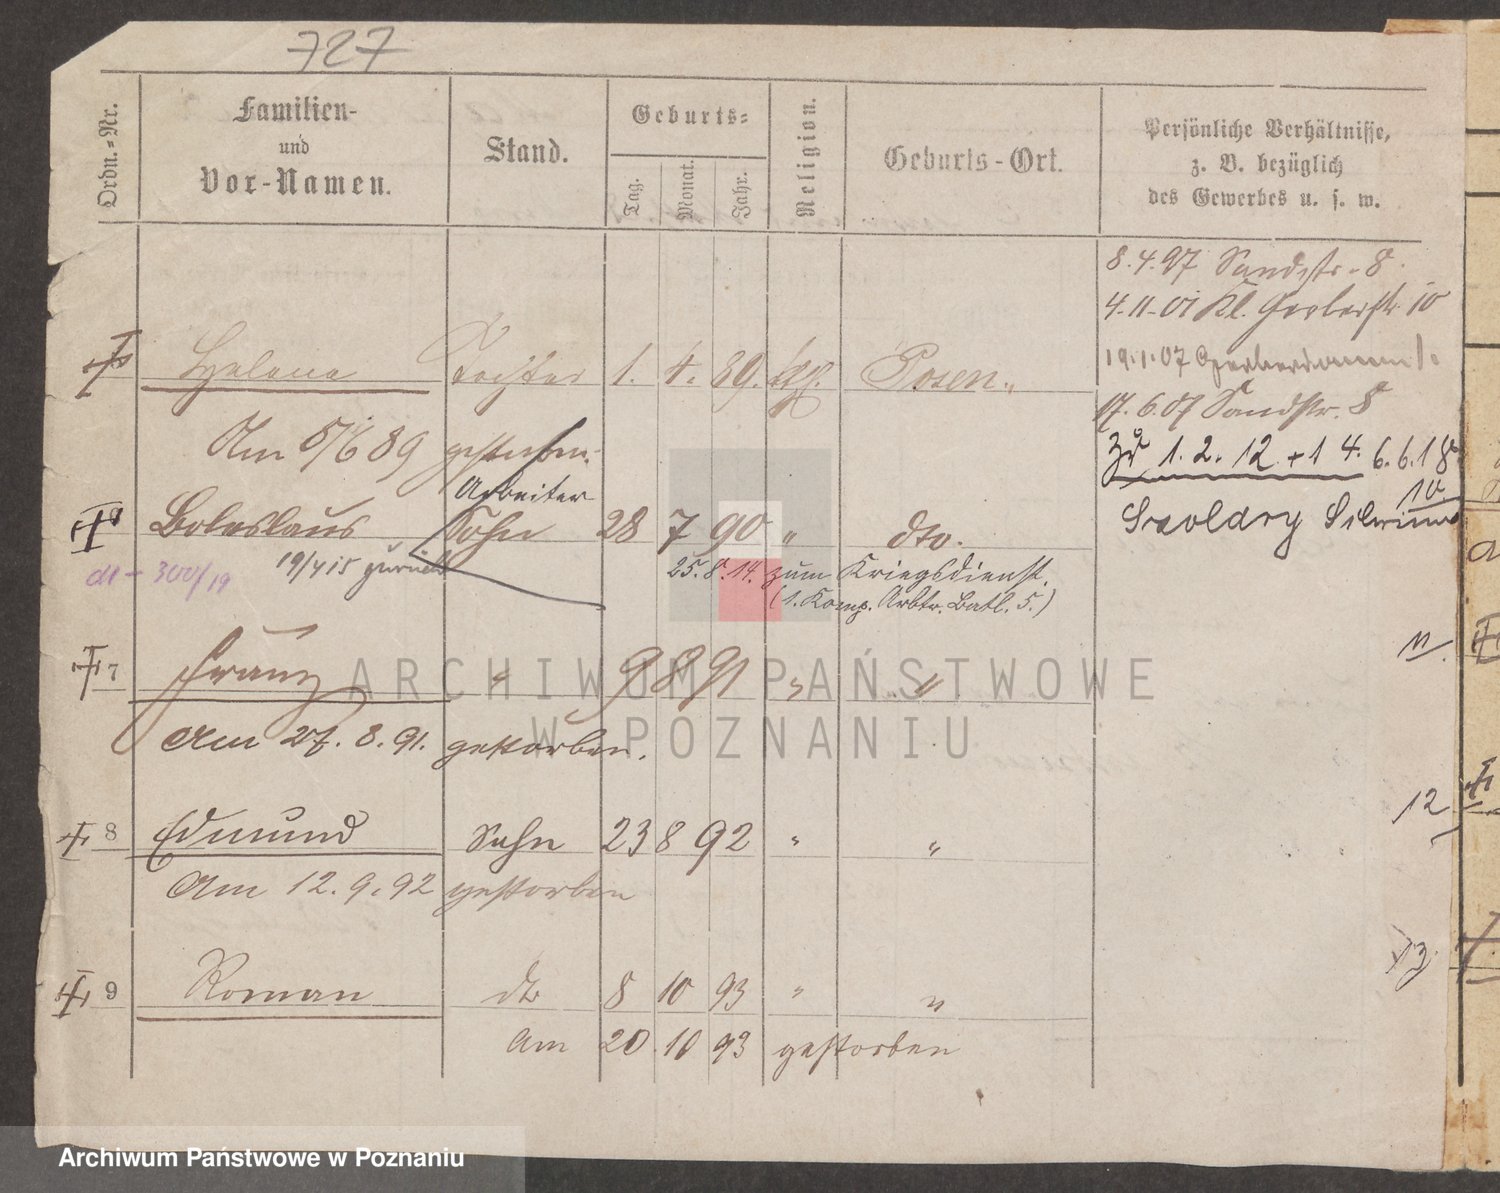 727
Ordn.-Nr.
Familien-
und
Vor-Namen.
Stand.
Geburts-
Tag.
Monat.
Jahr.
Religion.
Geburts-Ort.
Persönliche Verhältnisse,
z. B. bezüglich
des Gewerbes u. s. w.
8.4.97 Sandstr. 8
4.11.01 Kl. Gerberstr. 10
19.1.07 Gerberdamm 1.
17.6.07 Sandstr. 8
Zu 1. 2. 12 + 14. 6.6.18
10.
Helena Tochter 1. 4. 89. kth. Posen.
Am 5/6 89 gestorben.
Arbeiter
Boleslaus Sohn 28 7 90 " dto.
19/4 15 zurück 25.8.14. zum Kriegsdienst.
(1. Komp. Arbtr. Batl. 5.)
300/19
7 Franz " 9 8 91 " "
Am 27. 8. 91. gestorben.
11
8 Edmund Sohn 23 8 92 " "
12
Am 12. 9. 92 gestorben
13
9 Roman dto 8 10 93 " "
am 20 10 93 gestorben
ARCHIWUM PAŃSTWOWE
W POZNANIU
Archiwum Państwowe w Poznaniu